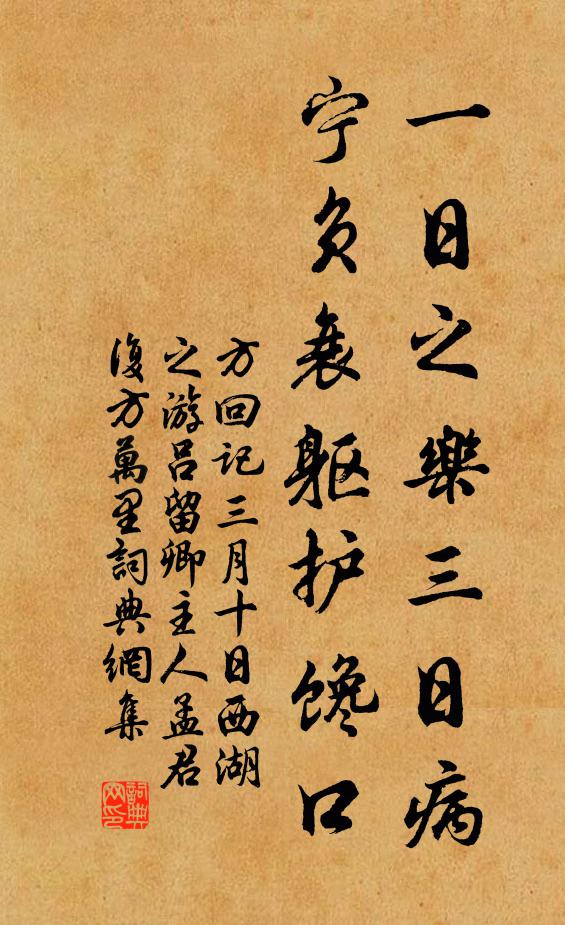 一日之樂三日病
宁负衰躯护馋口
方回记三月十日西湖
之游吕留卿主人孟君
復方萬里詞典網集
詞典
网印